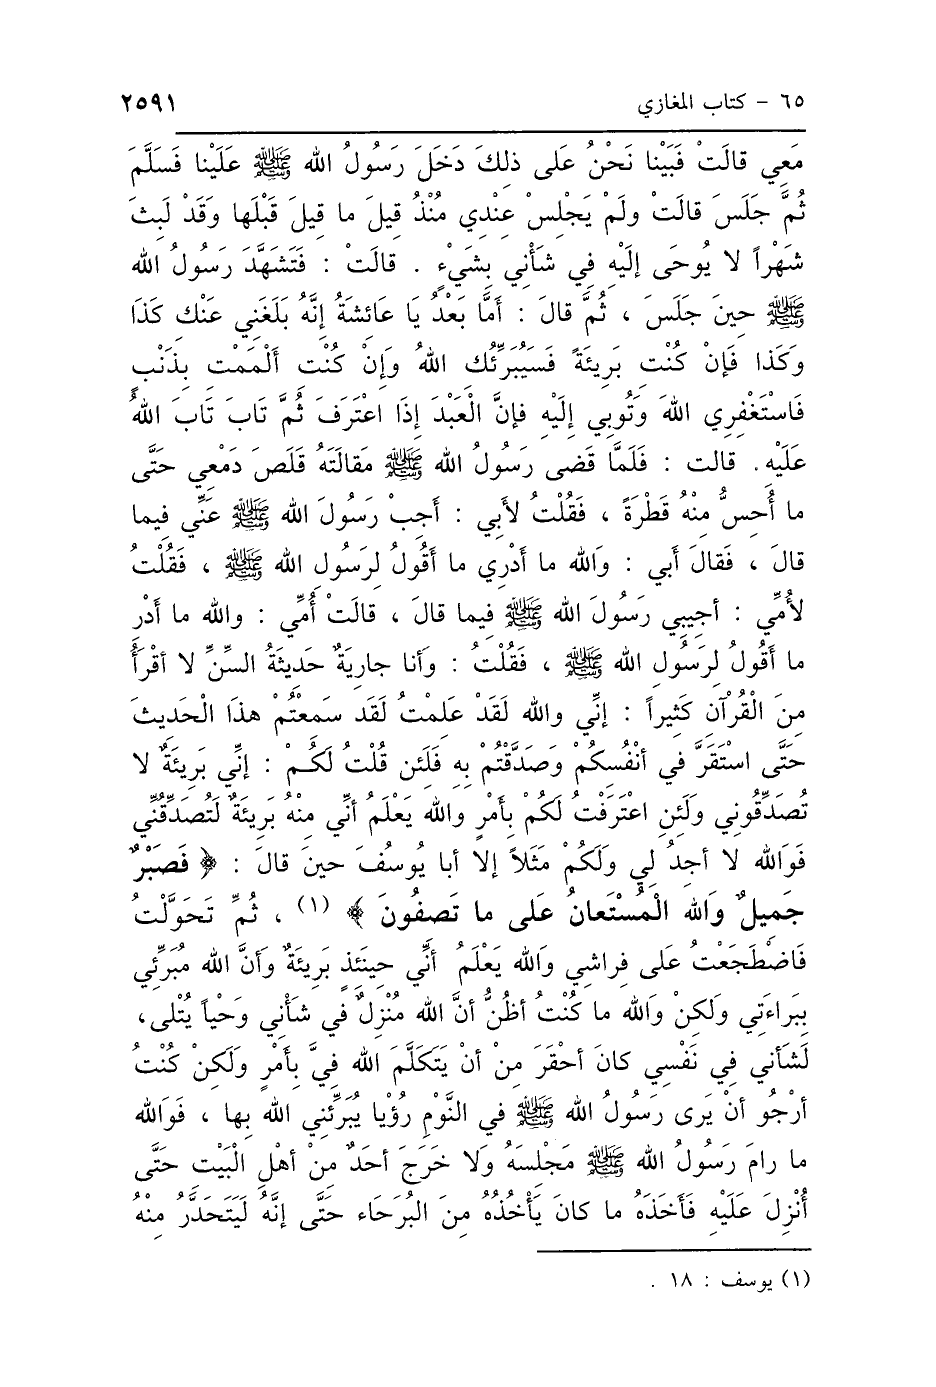 ٦٥ - كتاب المغازي ٢٥٩١
مَعِي قالَتْ فَبَيْنا نَحْنُ عَلى ذلِكَ دَخَلَ رَسُولُ الله ﷺ عَلَيْنا فَسَلَّمَ
ثُمَّ جَلَسَ قالَتْ ولَمْ يَجلِسْ عِنْدِي مُنْذُ قيلَ ما قِيلَ قَبْلَها وَقَدْ لَبِثَ
شَهْراً لا يُوحَى إلَيْهِ فِي شَأْنِي بِشَيْءٍ . قالَتْ : فَتَشَهَّدَ رَسولُ الله
ﷺ حِينَ جَلَسَ ، ثُمَّ قالَ : أمَّا بَعْدُ يَا عائشَةُ إنَّهُ بَلَغَنِي عَنْك كَذَا
وَكَذا فَإنْ كُنْت بَرِيئَةً فَسَيُبَرِّئُك اللهُ وَإنْ كُنْت ألْمَمْت بِذَنْبٍ
فَاسْتَغْفِرِي اللهَ وَتُوبِي إلَيْهِ فإنَّ الْعَبْدَ إذَا اعْتَرَفَ ثُمَّ تابَ تَابَ اللهُ
عَلَيْهِ. قالت : فَلَمَّا قَضى رَسُولُ الله ﷺ مَقالَتَهُ قَلَصَ دَمْعِي حَتَّى
ما أُحِسُّ مِنْهُ قَطْرَةً ، فَقُلْتُ لأبِي : أجِبْ رَسُولَ الله ﷺ عَنِّي فِيما
قالَ ، فَقالَ أبي : وَالله ما أدْرِي ما أقُولُ لِرَسُولِ الله ﷺ ، فَقُلْتُ
لأُمِّي : أجِيبِي رَسُولَ الله ﷺ فِيما قالَ ، قالَتْ أُمِّي : والله ما أدْرِ
ما أقُولُ لِرَسُولِ الله ﷺ ، فَقُلْتُ : وأنا جارِيَةٌ حَدِيثَةُ السِّنِّ لا أقْرَأُ
مِنَ الْقُرْآنِ كَثِيراً : إنِّي والله لَقَدْ عَلِمْتُ لَقَد سَمِعْتُمْ هذَا الْحَدِيثَ
حَتَّى اسْتَقَرَّ في أنْفُسِكُمْ وَصَدَّقْتُمْ بِهِ فَلَئن قُلْتُ لَكُمْ : إنِّي بَرِيئَةٌ لا
تُصَدِّقُوني وَلَئنِ اعْتَرَفْتُ لَكُمْ بِأمْرٍ والله يَعْلَمُ أنِّي مِنْهُ بَرِيئَةٌ لَتُصَدِّقُنِّي
فَوَالله لا أجِدُ لِي وَلَكُمْ مَثَلاً إلا أبا يُوسُفَ حِينَ قالَ : ﴿ فَصَبْرٌ
جَمِيلٌ وَالله الْمُسْتَعانُ عَلى ما تَصِفُونَ ﴾ (١) ، ثُمَّ تَحَوَّلْتُ
فَاضْطَجَعْتُ عَلى فِراشِي وَالله يَعْلَمُ أنِّي حِينَئِذٍ بَرِيئَةٌ وَأنَّ الله مُبَرِّئِي
بِبَراءَتِي وَلكِنْ وَالله ما كُنْتُ أظُنُّ أنَّ الله مُنْزِلٌ في شَأْنِي وَحْياً يُتْلى،
لَشَأني في نَفْسِي كانَ أحْقَرَ مِنْ أنْ يَتَكَلَّمَ الله فِيَّ بِأمْرٍ ولَكِنْ كُنْتُ
أرْجُو أنْ يَرى رَسُولُ الله ﷺ في النَّوْمِ رُؤْيا يُبَرِّئُنِي الله بِها ، فَوَالله
ما رامَ رَسُولُ الله ﷺ مَجْلِسَهُ وَلا خَرَجَ أحَدٌ مِنْ أهْلِ الْبَيْتِ حَتَّى
أُنْزِلَ عَلَيْهِ فَأَخَذَهُ ما كانَ يَأْخُذُهُ مِنَ البُرَحَاء حَتَّى إنَّهُ لَيَتَحَدَّرُ مِنْهُ
(١) يوسف : ١٨ .